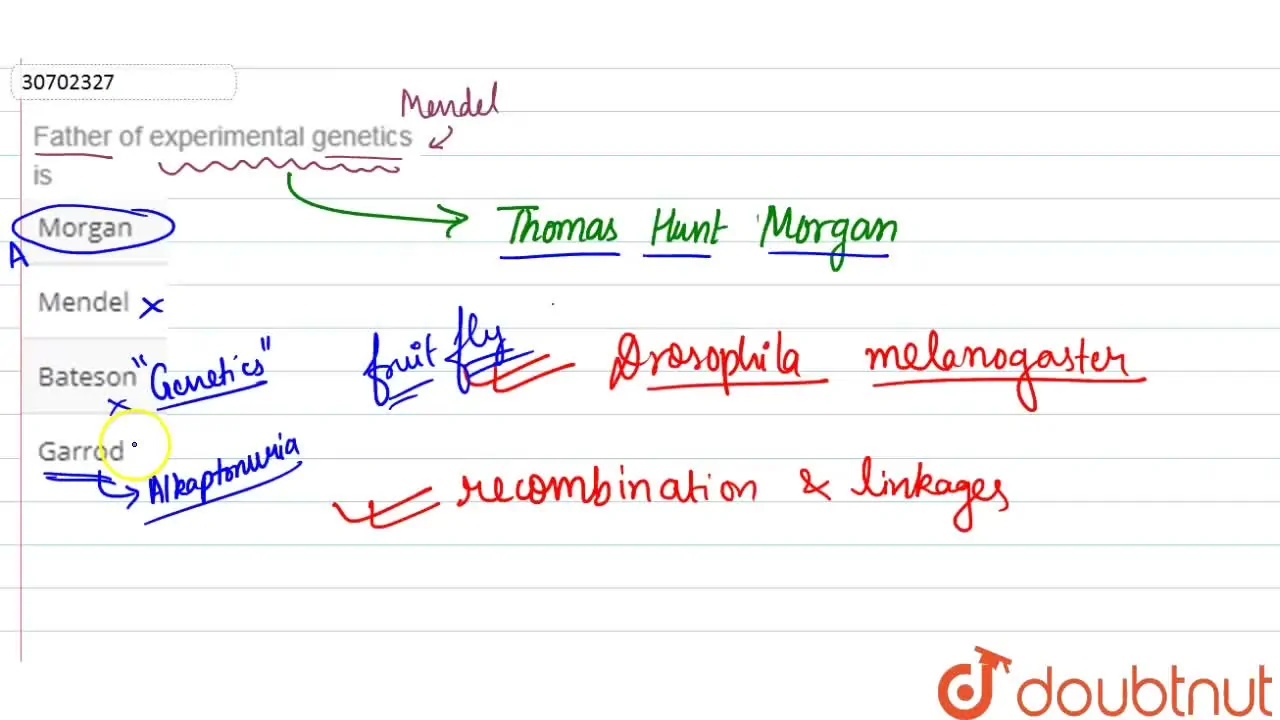 30702327
Mendel
Father of experimental genetics
is
Morgan
A
Thomas Hunt Morgan
Mendel x
Bateson "Genetics"
x
fruit fly
Drosophila melanogaster
Garrod
Alkaptonuria
recombination & linkages
doubtnut